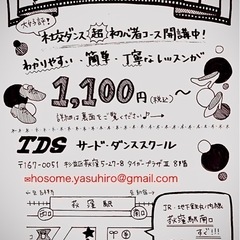 大好評!
社交ダンス超初心者コース開講中!
わかりやすい・簡単・丁寧なレッスンが
1,100円(税込)〜
詳細は裏面をご覧ください♪
TDS サード・ダンススクール
〒167-0051 杉並区荻窪5-27-8
8階
✉hosome.yasuhiro@gmail.com
荻窪駅
JR・地下鉄丸ノ内線
荻窪駅南口
すぐ!!!